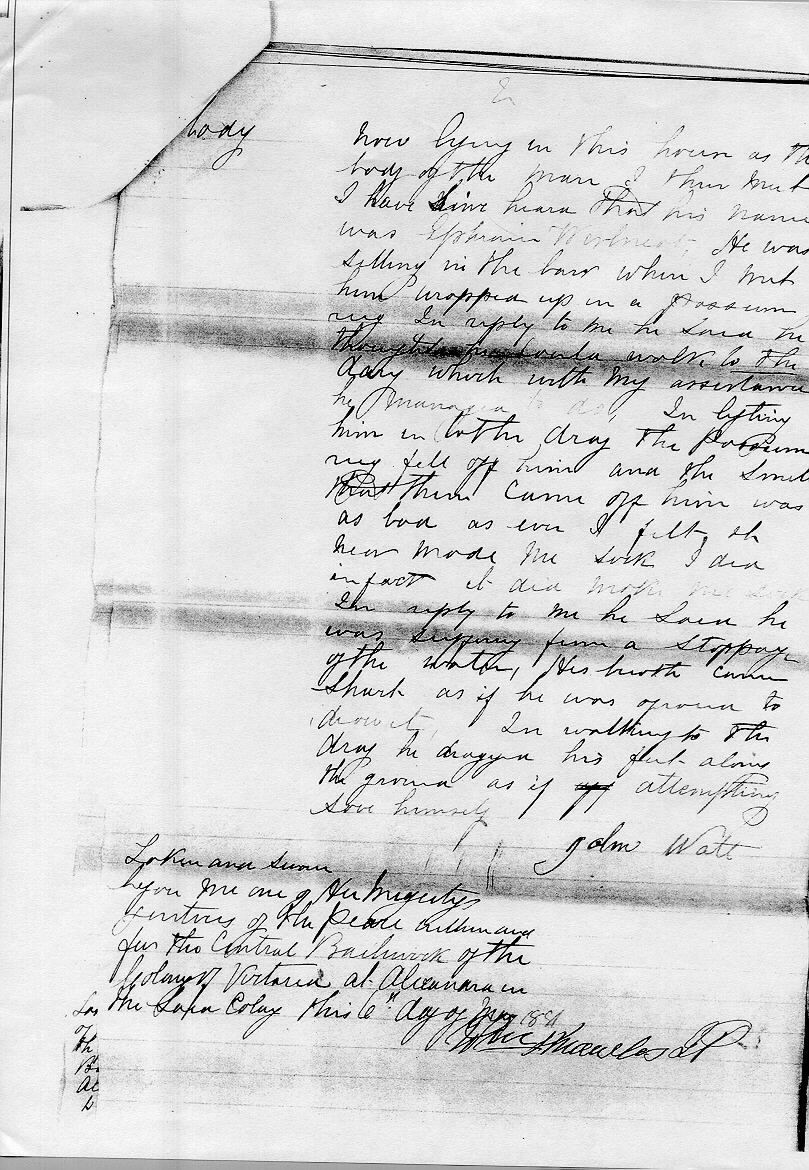 2
body
now lying in this house as th
body of the man I then met
I have since heard that his name
was Ephraim He was
sitting in the bar when I met
him wropped up in a possum
rug In reply to me he said he
thought he could walk to the
dray which with my assistance
he managed to do, In lifting
him in to the dray the possum
rug fell off him and the smell
that then came off him was
as bad as ever I felt, it
near made me sick I did
in fact it did make me sick
In reply to me he said he
was suffering from a stoppage
of the water, His breath came
short as if he was afraid to
draw it, In walking to the
dray he dragged his feet along
the ground as if attempting
save himself
John Watt
Taken and sworn
before me one of Her Majestys
Justices of the Peace in and
for the Central Bailiwick of the
Colony of Victoria at Alexandra in
the said Colony this 6th day of May 1881
JP
of
th
B
Al